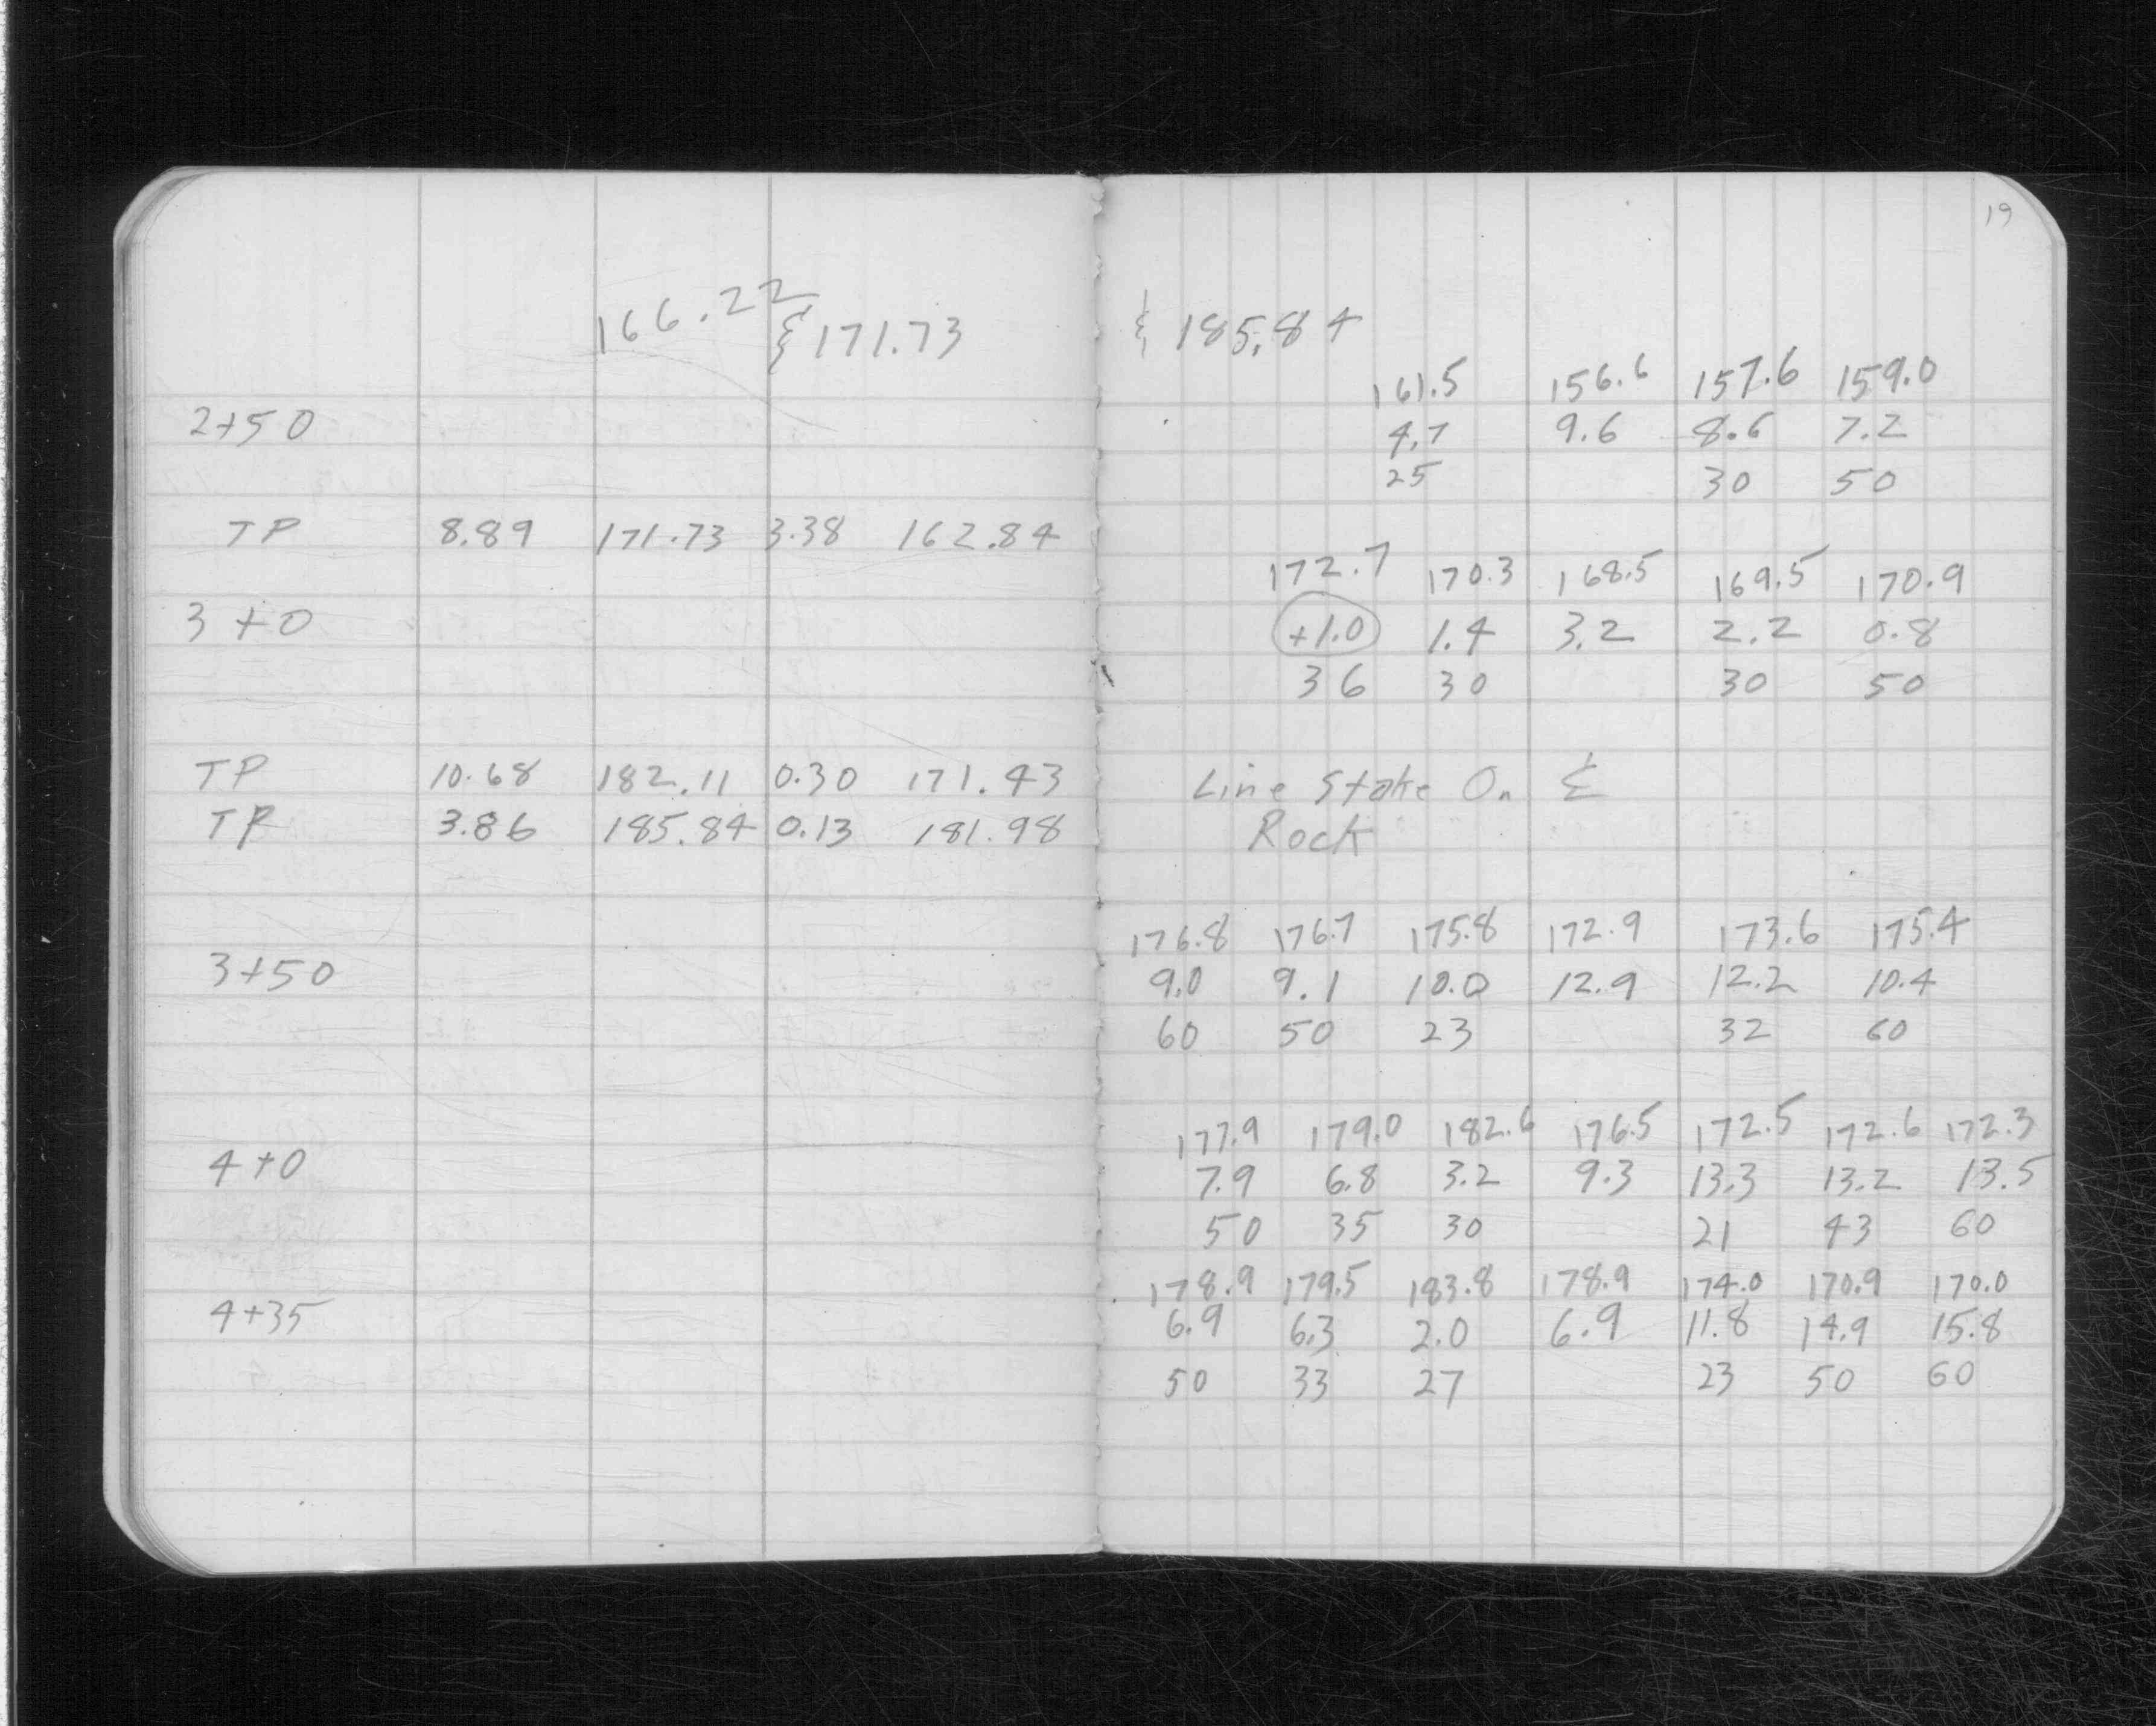 166.22
& 171.73
2+50
TP 8.89 171.73 3.38 162.84
3+0
TP 10.68 182.11 0.30 171.43
TP 3.86 185.84 0.13 181.98
3+50
4+0
4+35
19
& 185.84
161.5 156.6 157.6 159.0
4.7 9.6 8.6 7.2
25 30 50
172.7 170.3 168.5 169.5 170.9
+1.0 1.4 3.2 2.2 0.8
36 30 30 50
Line Stake On ℄
Rock
176.8 176.7 175.8 172.9 173.6 175.4
9.0 9.1 10.0 12.9 12.2 10.4
60 50 23 32 60
177.9 179.0 182.6 176.5 172.5 172.6 172.3
7.9 6.8 3.2 9.3 13.3 13.2 13.5
50 35 30 21 43 60
178.9 179.5 183.8 178.9 174.0 170.9 170.0
6.9 6.3 2.0 6.9 11.8 14.9 15.8
50 33 27 23 50 60